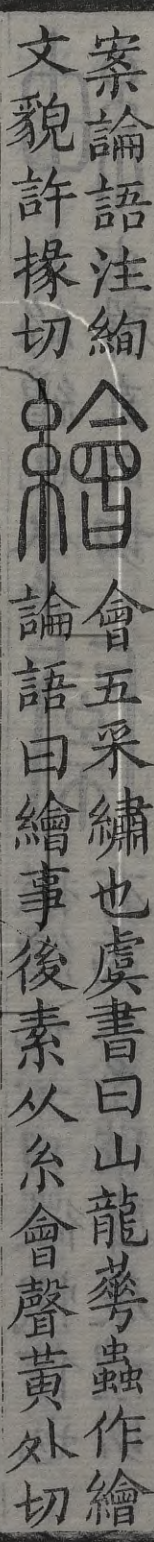 案論語注絢
文貌許掾切
繪
會五采繡也虞書曰山龍華蟲作繪
論語曰繪事後素从糸會聲黃外切